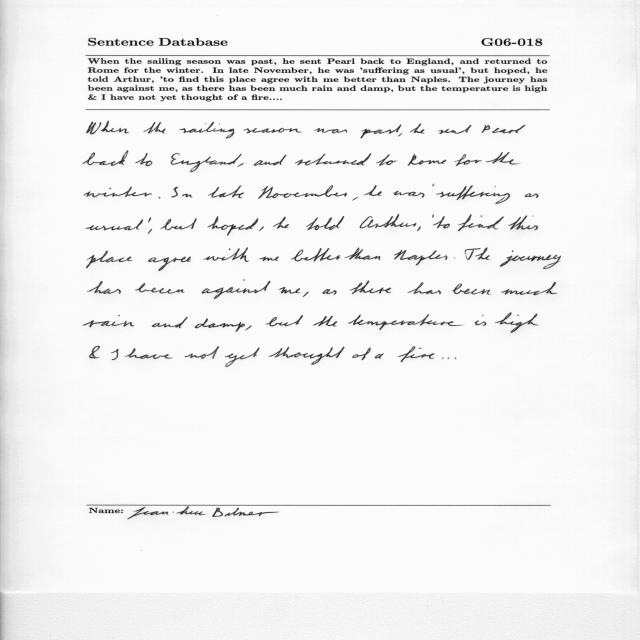 Sentence Database G06-018
When the sailing season was past, he sent Pearl back to England, and returned to
Rome for the winter. In late November, he was 'suffering as usual', but hoped, he
told Arthur, 'to find this place agree with me better than Naples. The journey has
been against me, as there has been much rain and damp, but the temperature is high
& I have not yet thought of a fire....
When the sailing season was past, he sent Pearl
back to England, and returned to Rome for the
winter. In late November, he was 'suffering as
usual', but hoped, he told Arthur, 'to find this
place agree with me better than Naples. The journey
has been against me, as there has been much
rain and damp, but the temperature is high
& I have not yet thought of a fire...
Name: Jean-Luc